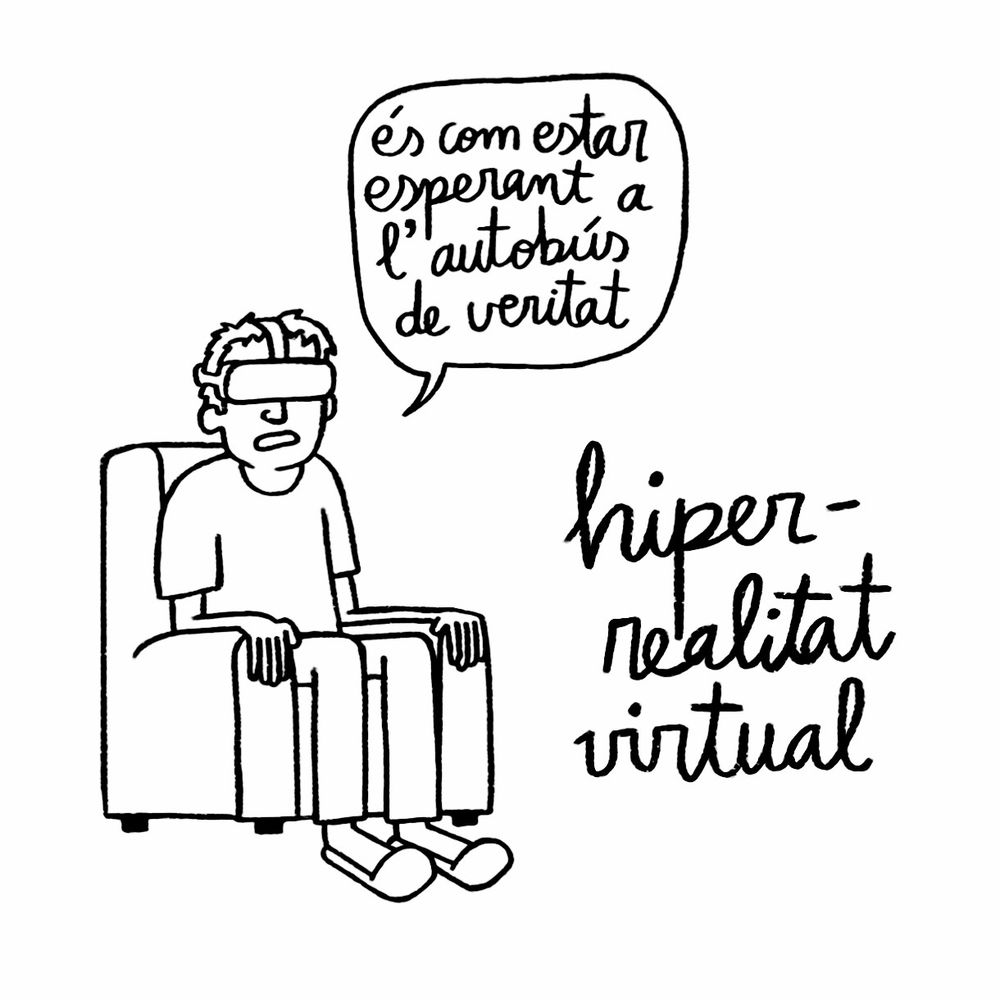 és com estar
esperant a
l'autobús
de veritat
hiper-
realitat
virtual